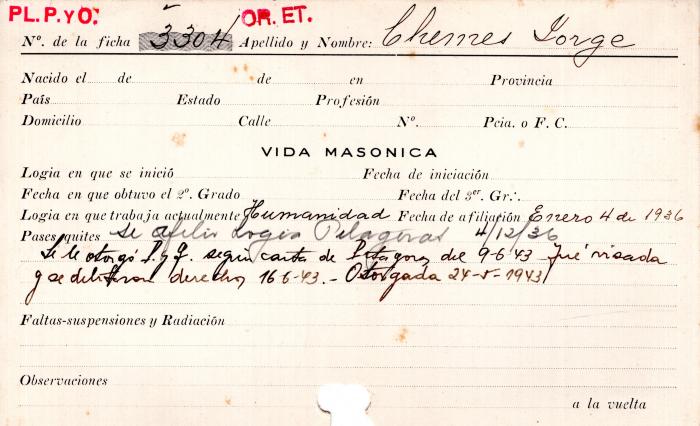 PL. P. y O. OR. ET.
Nº. de la ficha 3304 Apellido y Nombre: Chemes Jorge
Nacido el de de en Provincia
País Estado Profesión
Domicilio Calle Nº. Pcia. o F. C.
VIDA MASONICA
Logia en que se inició Fecha de iniciación
Fecha en que obtuvo el 2º. Grado Fecha del 3er. Gr∴
Logia en que trabaja actualmente Humanidad Fecha de afiliación Enero 4 de 1936
Pases quites Se afilió Logia Pitagoras 4/12/36
Se le otorgó P. y Q. según carta de Pitagoras del 9-6-43 Fué visada
y se debitaron derechos 16-6-43.- Otorgada 24-5-1943
Faltas-suspensiones y Radiación
Observaciones
a la vuelta